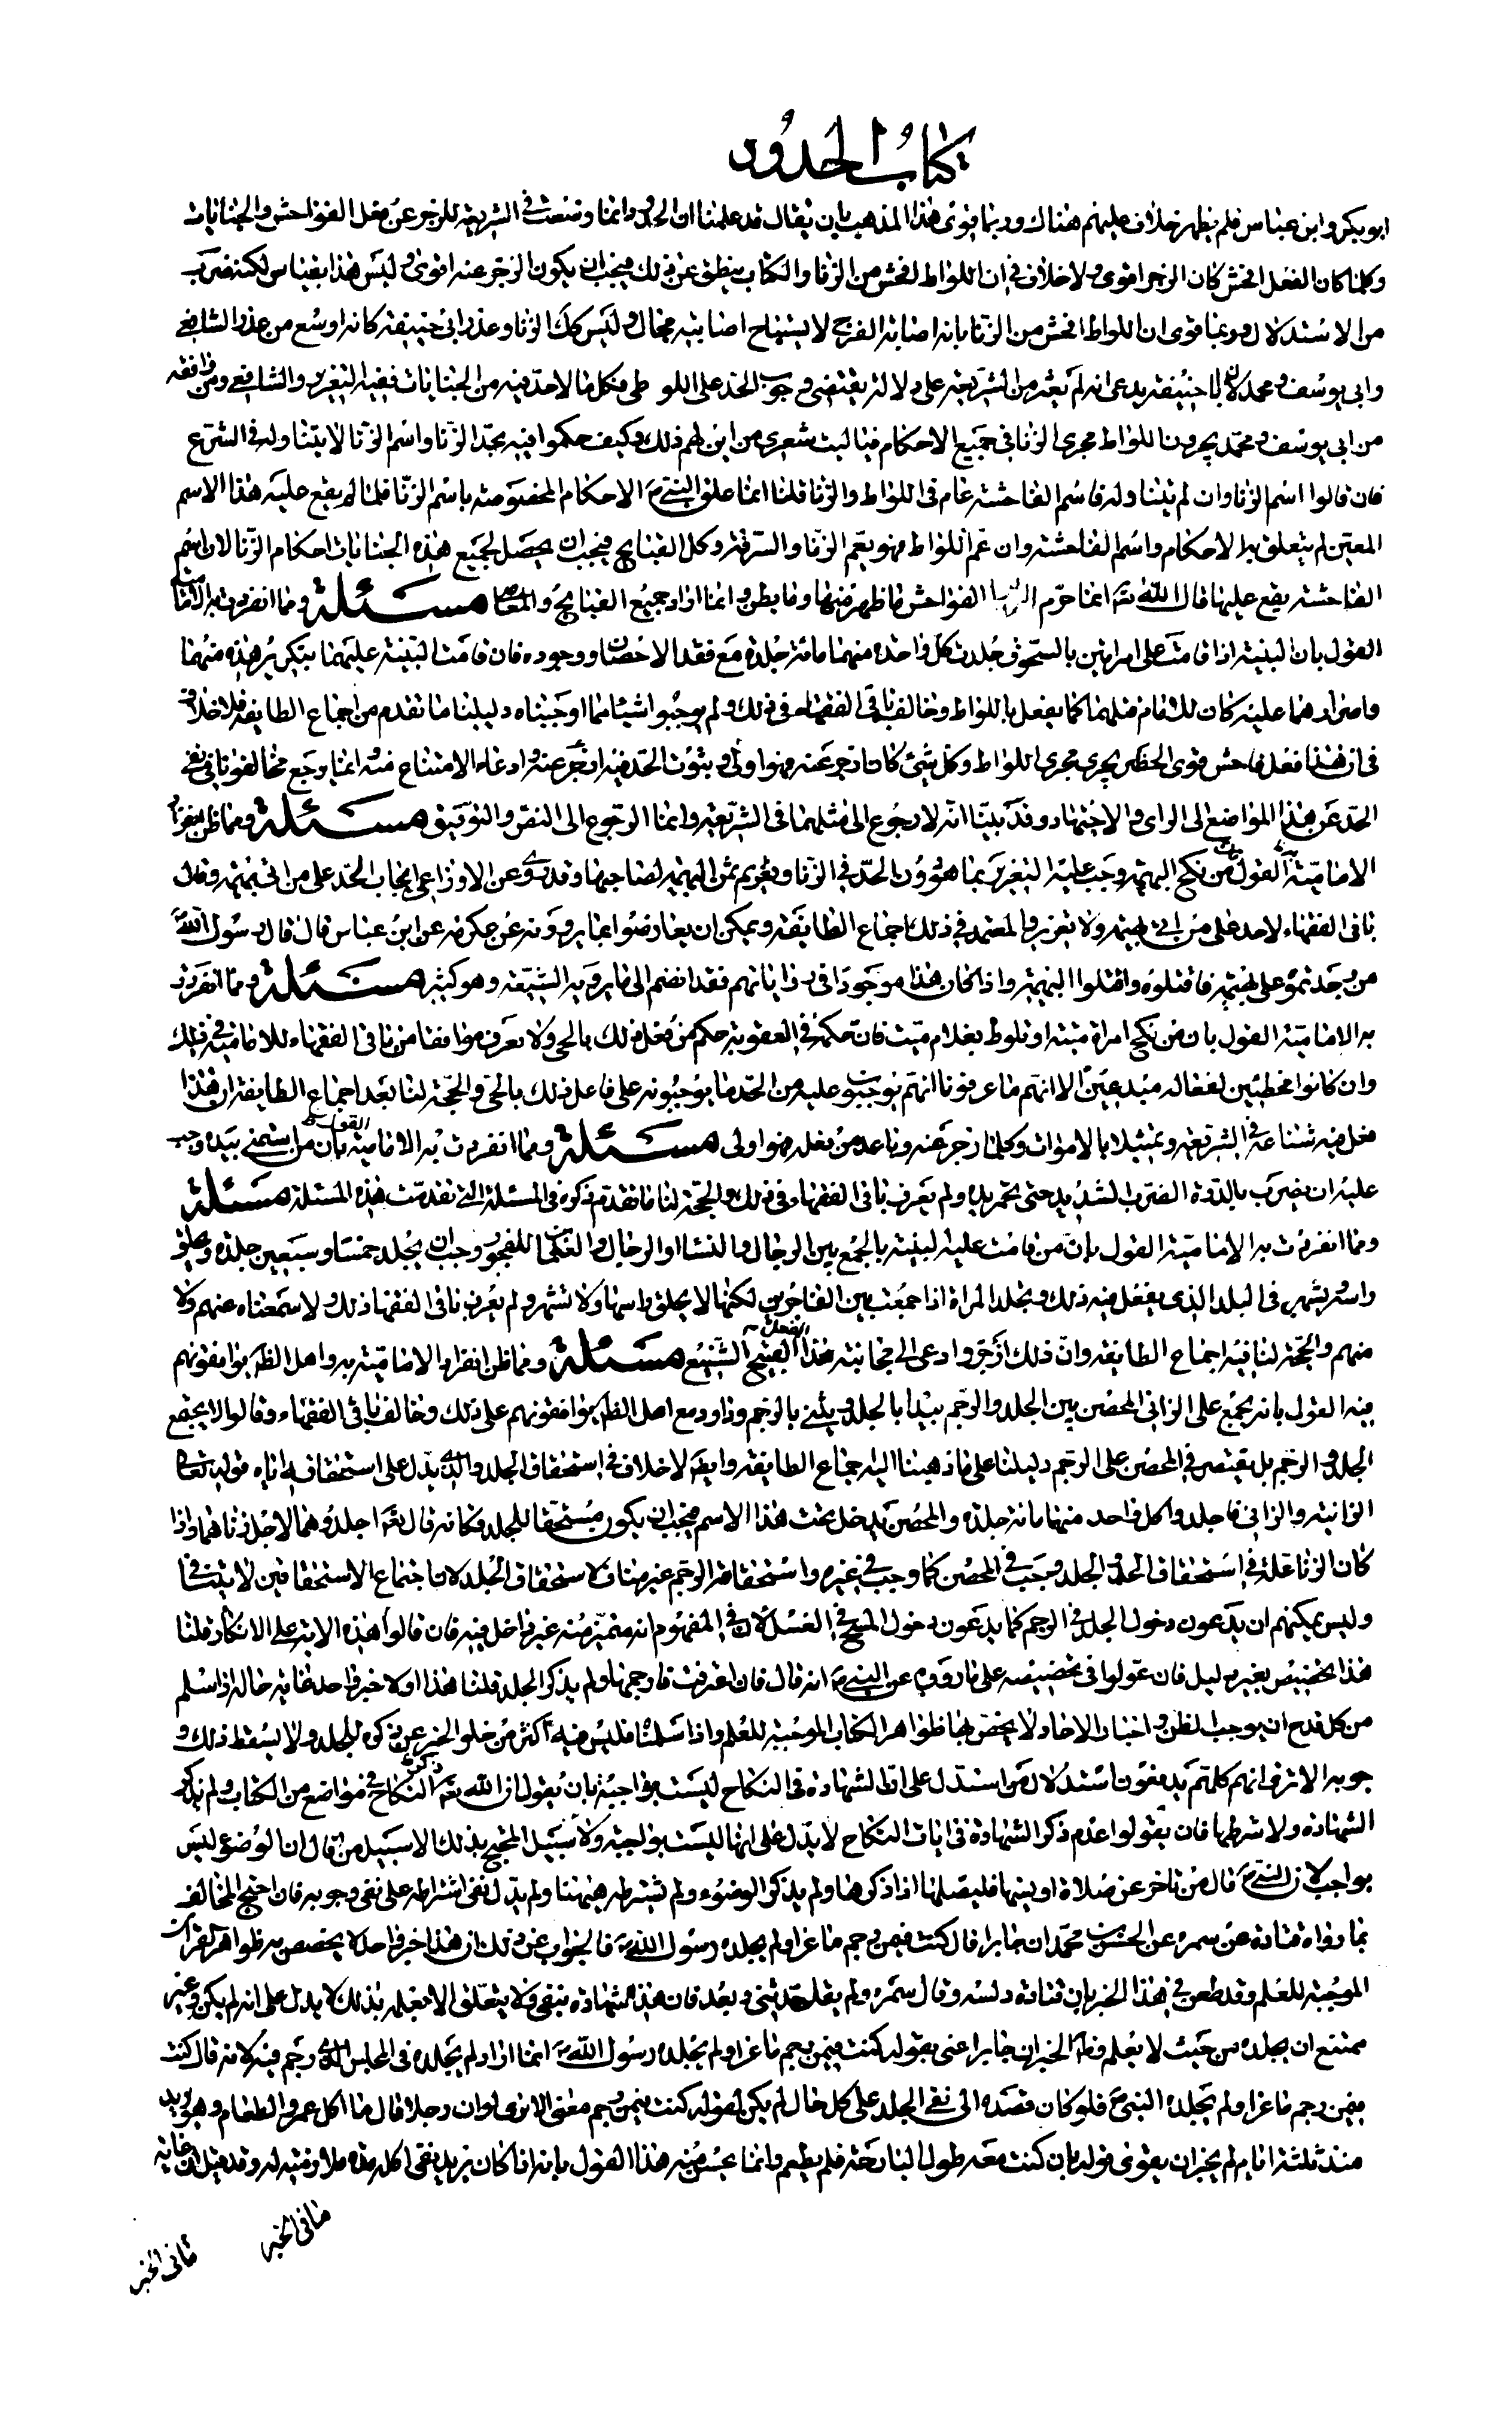 كتاب الحدود
ابو بكر وابن عباس فلم يظهر خلاف عليهم هناك وربما قوى هذا المذهب بان يقال قد علمنا ان الحدود انما وضعت في الشريعة للزجر عن فعل الفواحش والجنايات
وكلما كان الفعل افحش كان الزجر اقوى ولا خلاف في ان اللواط افحش من الزنا والكتاب ينطق عن ذلك فيجب ان يكون الزجر عنه اقوى وليس هذا بقياس لكنه ضرب
من الاستدلال وربما قوى ان اللواط افحش من الزنا بانه اصابة الفرج لا يستباح اصابته بحال وليس كك الزنا وعذر ابى حنيفة كانه اوسع من عذر الشافعي
وابي يوسف ومحمد لان ابا حنيفة يدعى انه لم يعثر من الشريعة على دلالة يقتضى وجوب الحد على اللوطى فكلما لا حد فيه من الجنايات ففيه التعزير والشافعي ومن وافقه
من ابي يوسف ومحمد يجرون اللواط مجرى الزنا في جميع الاحكام فياليت شعرى من اين لهم ذلك وكيف حكموا فيه بحد الزنا واسم الزنا لا يتناوله في الشرع
فان قالوا اسم الزنا وان لم يتناوله فاسم الفاحشة عام في اللواط والزنا قلنا انما علق النبي ص الاحكام المخصوصة باسم الزنا فلما لم يقع عليه هذا الاسم
المعين لم يتعلق به الاحكام واسم الفاحشة وان عم اللواط فهو يعم الزنا والسرقة وكل القبايح فيجب ان يحصل لجميع هذه الجنايات احكام الزنا لان اسم
الفاحشة يقع عليها قال الله تعالى انما حرم الفواحش ما ظهر منها وما بطن وانما اراد جميع القبايح والمعاصي مسئلة ومما انفردت به الامامية
القول بان البينة اذا قامت على امراتين بالسحق جلدت كل واحدة منهما مائة جلدة مع فقد الاحصان ووجوده فان قامت البينة عليهما بتكرير هذه منهما
واصرارهما عليه كان للامام قتلهما كما يفعل باللواط وخالف باقى الفقهاء في ذلك ولم يوجبوا شيئا مما اوجبناه دليلنا ما تقدم من اجماع الطايفة ولا خلاف
في ان هذا فعل فاحش قوى الحظر يجرى مجرى اللواط وكل شئ كان ازجر عنه فهو اولى وثبوت الحد فيه ازجر عنه وادعاء الامتناع منه انما يرجع مخالفونا في نفى
الحد عن هذا المواضع الى الراى والاجتهاد وقد بينا انه لا رجوع الى مثلهما في الشريعة وانما الرجوع الى النص والتوقيف مسئلة ومما ظن انفراد
الامامية به القول بان من نكح البهيمة وجب عليه التعزير بما هو دون الحد في الزنا ويغرم ثمن البهيمة لصاحبها وقد روى عن الاوزاعي ايجاب الحد على من اتى بهيمة وقال
باقى الفقهاء لا حد على من اتى بهيمة ولا تعزير والمعتمد في ذلك اجماع الطايفة ويمكن ان يعارضوا بما يروونه عن عكرمة عن ابن عباس قال قال رسول الله ص
من وجدتموه على بهيمة فاقتلوه واقتلوا البهيمة واذا كان هذا موجودا في رواياتهم فقد انضم الى ما يرويه الشيعة وهو كثير مسئلة ومما انفردت
به الامامية القول بان من نكح امراة ميتة او تلوط بغلام ميت فان حكمه في العقوبة حكم من فعل ذلك بالحى ولا نعرف موافقا من باقى الفقهاء للامامية في ذلك
وان كانوا مخطئين لفعاله مبدعين الا انهم ما عرفونا انهم يوجبون عليه من الحد ما يوجبونه على فاعل ذلك بالحى والحجة لنا بعد اجماع الطايفة ان هذا
فعل فيه شناعة في الشريعة وتمثيلا بالاموات وكلما زجر عنه وباعد من فعله فهو اولى مسئلة ومما انفردت به الامامية القول بان من استمنى بيده وجب
عليه ان يضرب بالدرة الضرب الشديد حتى تحمر يده ولم يعرف باقى الفقهاء في ذلك والحجة لنا ما تقدم ذكره في المسئلة التي تقدمت هذه المسئلة مسئلة
ومما انفردت به الامامية القول بان من قامت عليه البينة بالجمع بين الرجال والنساء او الرجال والغلمان للفجور وجب ان يجلد خمسا وسبعين جلدة ويحلق
راسه ويشهر في البلد الذي يفعل فيه ذلك وتجلد المراة اذا جمعت بين الفاجرين لكنها لا يحلق راسها ولا تشهر ولم يعرف باقى الفقهاء ذلك ولا سمعناه عنهم ولا
منهم والحجة لنا فيه اجماع الطايفة وان ذلك ازجر وادعى الى مجانبة هذا الفعل القبيح الشنيع مسئلة ومما ظن انفراد الامامية به واهل الظاهر يوافقونهم
فيه القول بانه يجمع على الزانى المحصن بين الجلد والرجم يبدأ بالجلد ويثنى بالرجم وداود مع اهل الظاهر يوافقونهم على ذلك وخالف باقى الفقهاء وقالوا لا يجمع
الجلد والرجم بل يقتصر في المحصن على الرجم دليلنا على ما ذهبنا اليه اجماع الطايفة وايضا لا خلاف في استحقاق الجلد والذى يدل على استحقاقه اياه قوله تعالى
الزانية والزانى فاجلدوا كل واحد منهما مائة جلدة والمحصن يدخل تحت هذا الاسم فيجب ان يكون مستحقا للجلد فكانه قال تعالى اجلدوهما لاجل زناهما واذا
كان الزنا علة في استحقاق الحد والجلد وجب في المحصن كما وجب في غيره واستحقاقه الرجم غير مناف لاستحقاق الجلد لان اجتماع الاستحقاقين لا يتنافى
وليس يمكنهم ان يدعون دخول الجلد في الرجم كما يدعون دخول المسح في الغسل لان في المفهوم انه متميز منه غير داخل فيه فان قالوا هذه الاية على الابكار قلنا
هذا تخصيص بغير دليل فان عولوا في تخصيصه على ما رووه عن النبي ص انه قال فان اعترفت فارجمها ولم يذكر الجلد قلنا هذا اولا خبر واحد غاية حاله اذا سلم
من كل قدح ان يوجب الظن واخبار الاحاد لا يخص بها ظواهر الكتاب الموجبة للعلم واذا سلمنا فليس فيه اكثر من خلو الخبر عن ذكره للجلد ولا يسقط ذلك و
جوبه الا ترى انهم كلهم يدفعون استدلال من استدل على ان الشهادة في النكاح ليست بواجبة بان يقول ان الله تعالى ذكر النكاح في مواضع من الكتاب ولم يذكر
الشهادة ولا شرطها فان يقولوا عدم ذكر الشهادة في ايات النكاح لا يدل على انها ليست بواجبة ولا سبيل المحتج بذلك الا سبيل من قال ان الوضوء ليس
بواجب لان النبي ص قال من تاخر عن صلاة او نسيها فليصلها اذا ذكرها ولم يذكر الوضوء ولم نشترطه هيهنا ولم يدل نفى اشتراطه على نفى وجوبه فان احتج المخالف
بما رواه قتادة عن سمره عن الحسن بن محمد ان جابرا قال كنت فيمن رجم ماعزا ولم يجلده رسول الله ص فالجواب عن ذلك ان هذا خبر واحد لا يخصص به ظواهر القرآن
الموجبة للعلم وقد طعن في هذا الخبر بان قتادة دلسه وقال سمره ولم يقل حدثنى وبعد فان هذه شهادة بنفى ولا يتعلق الا بعلمه بذلك لا يدل على انه لم يكن وغير
ممتنع ان يجلده من حيث لا يعلم فظاهر الخبر ان جابرا عنى بقوله كنت فيمن رجم ماعزا ولم يجلده رسول الله ص انما اراد لم يجلده في المجلس الذي رجم فيه لانه قال كنت
فيمن رجم ماعزا ولم يجلده النبي ص فلو كان قصده الى نفى الجلد على كل حال لم يكن لقوله كنت فيمن رجم معنى الا ترى لو ان رجلا قال ما اكل عمرو الطعام وهو يريد
منذ ثلثة ايام لم يجز ان يقوى قوله بان كنت معه طول البارحة فلم يطعم وانما يحسن منه هذا القول بانه اذا كان يريد نفى اكله مدة ملازمته له وقد قيل ان غاية
ما في الخبر
ما في الخبر